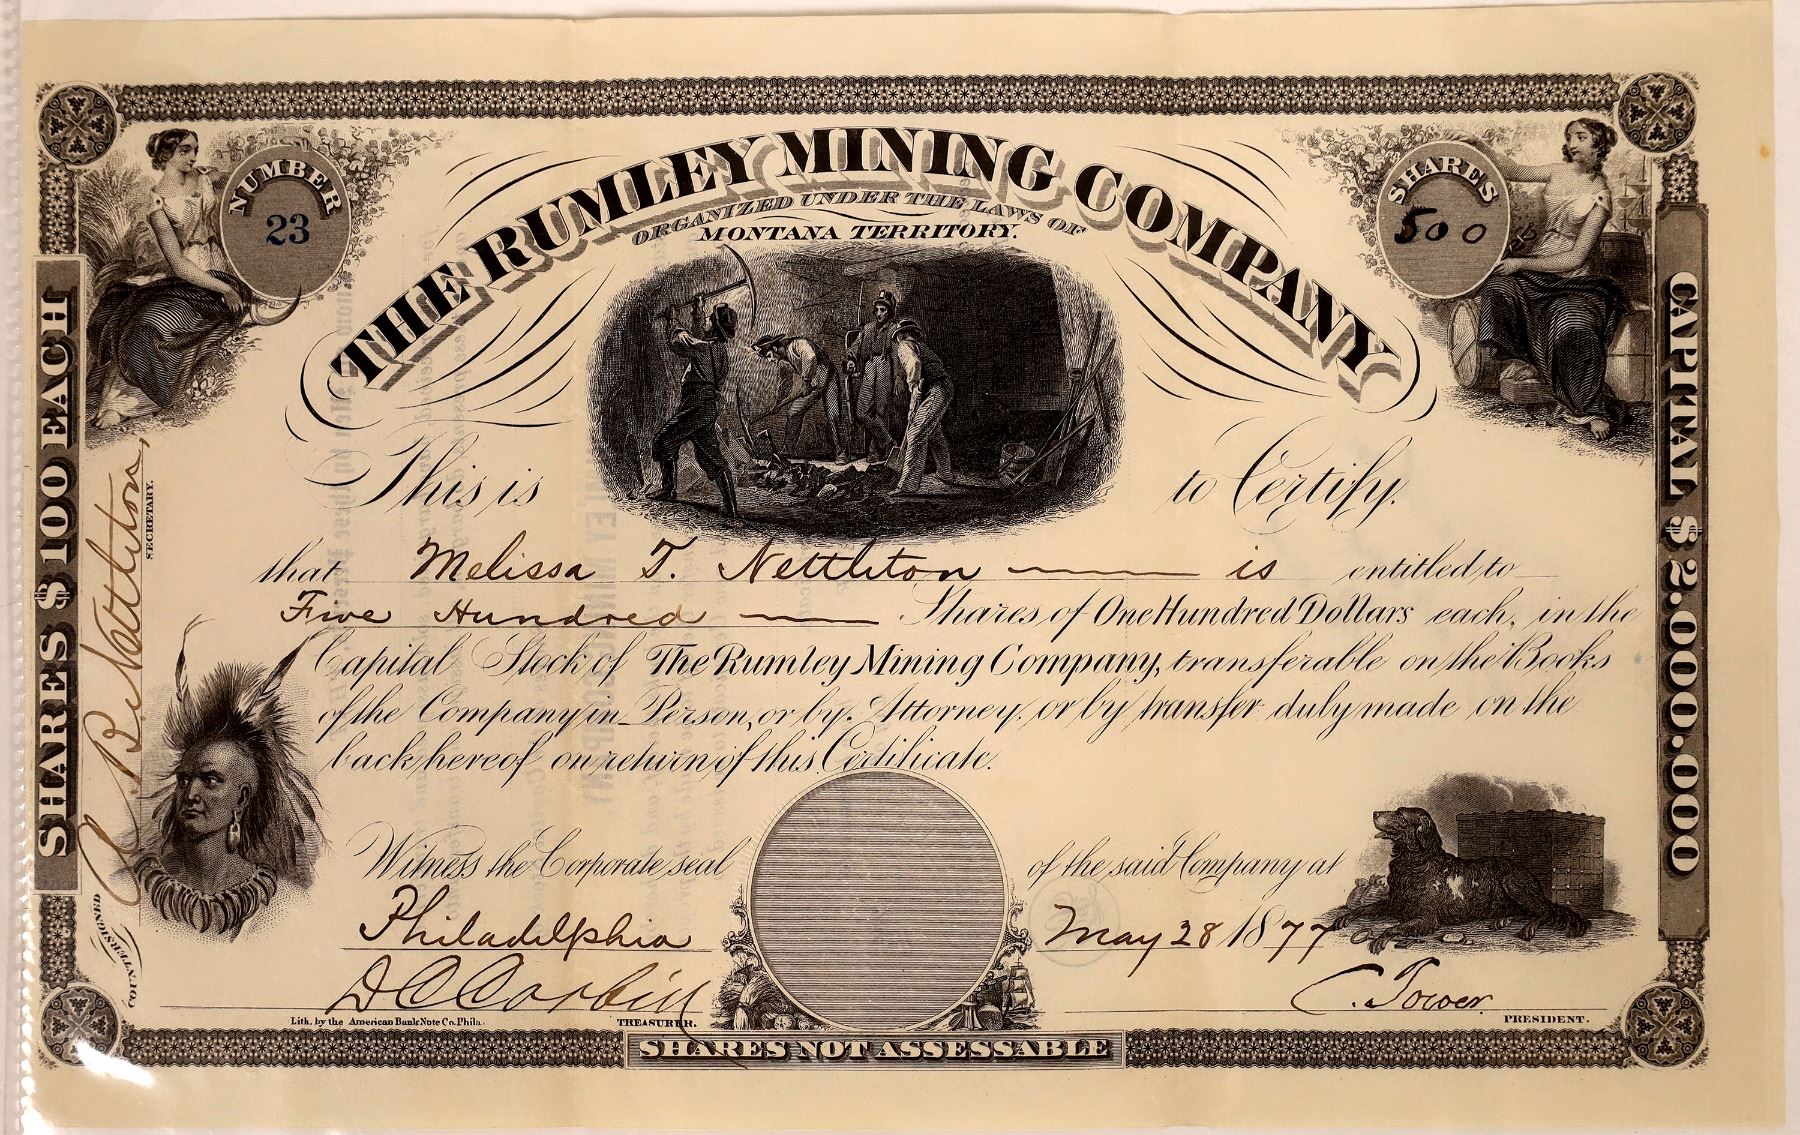 THE RUMLEY MINING COMPANY
ORGANIZED UNDER THE LAWS OF
MONTANA TERRITORY.
NUMBER
23
SHARES
500
SHARES $100 EACH
CAPITAL $2.000.000
This is to Certify.
that Melissa T. Nettleton is entitled to
Five Hundred Shares of One Hundred Dollars each, in the
Capital Stock of The Rumley Mining Company, transferable on the Books
of the Company in Person, or by Attorney, or by transfer duly made on the
back hereof on return of this Certificate.
Witness the Corporate seal of the said Company at
Philadelphia May 28 1877
COUNTERSIGNED
A. B. Nettleton,
SECRETARY.
D C Corbin
C. Tower
Lith. by the American Bank Note Co. Phila.
TREASURER.
PRESIDENT.
SHARES NOT ASSESSABLE